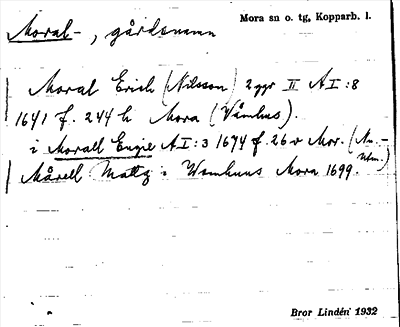 Moral-, gårdsnamn
Mora sn o. tg, Kopparb. l.
Moral Erich (Nilsson) 2 ggr II A I :8
1641 f. 244 h Mora (Våmhus).
i Morall Engie A I : 3 1674 f. 26 v Mor.
Mårell Mattz i Womhuus Mora 1699.
Bror Lindén 1932